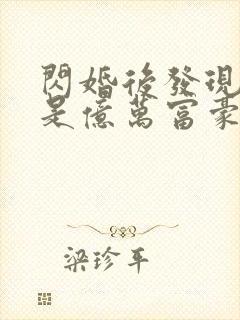 閃婚後發現
是億萬富豪
梁珍平